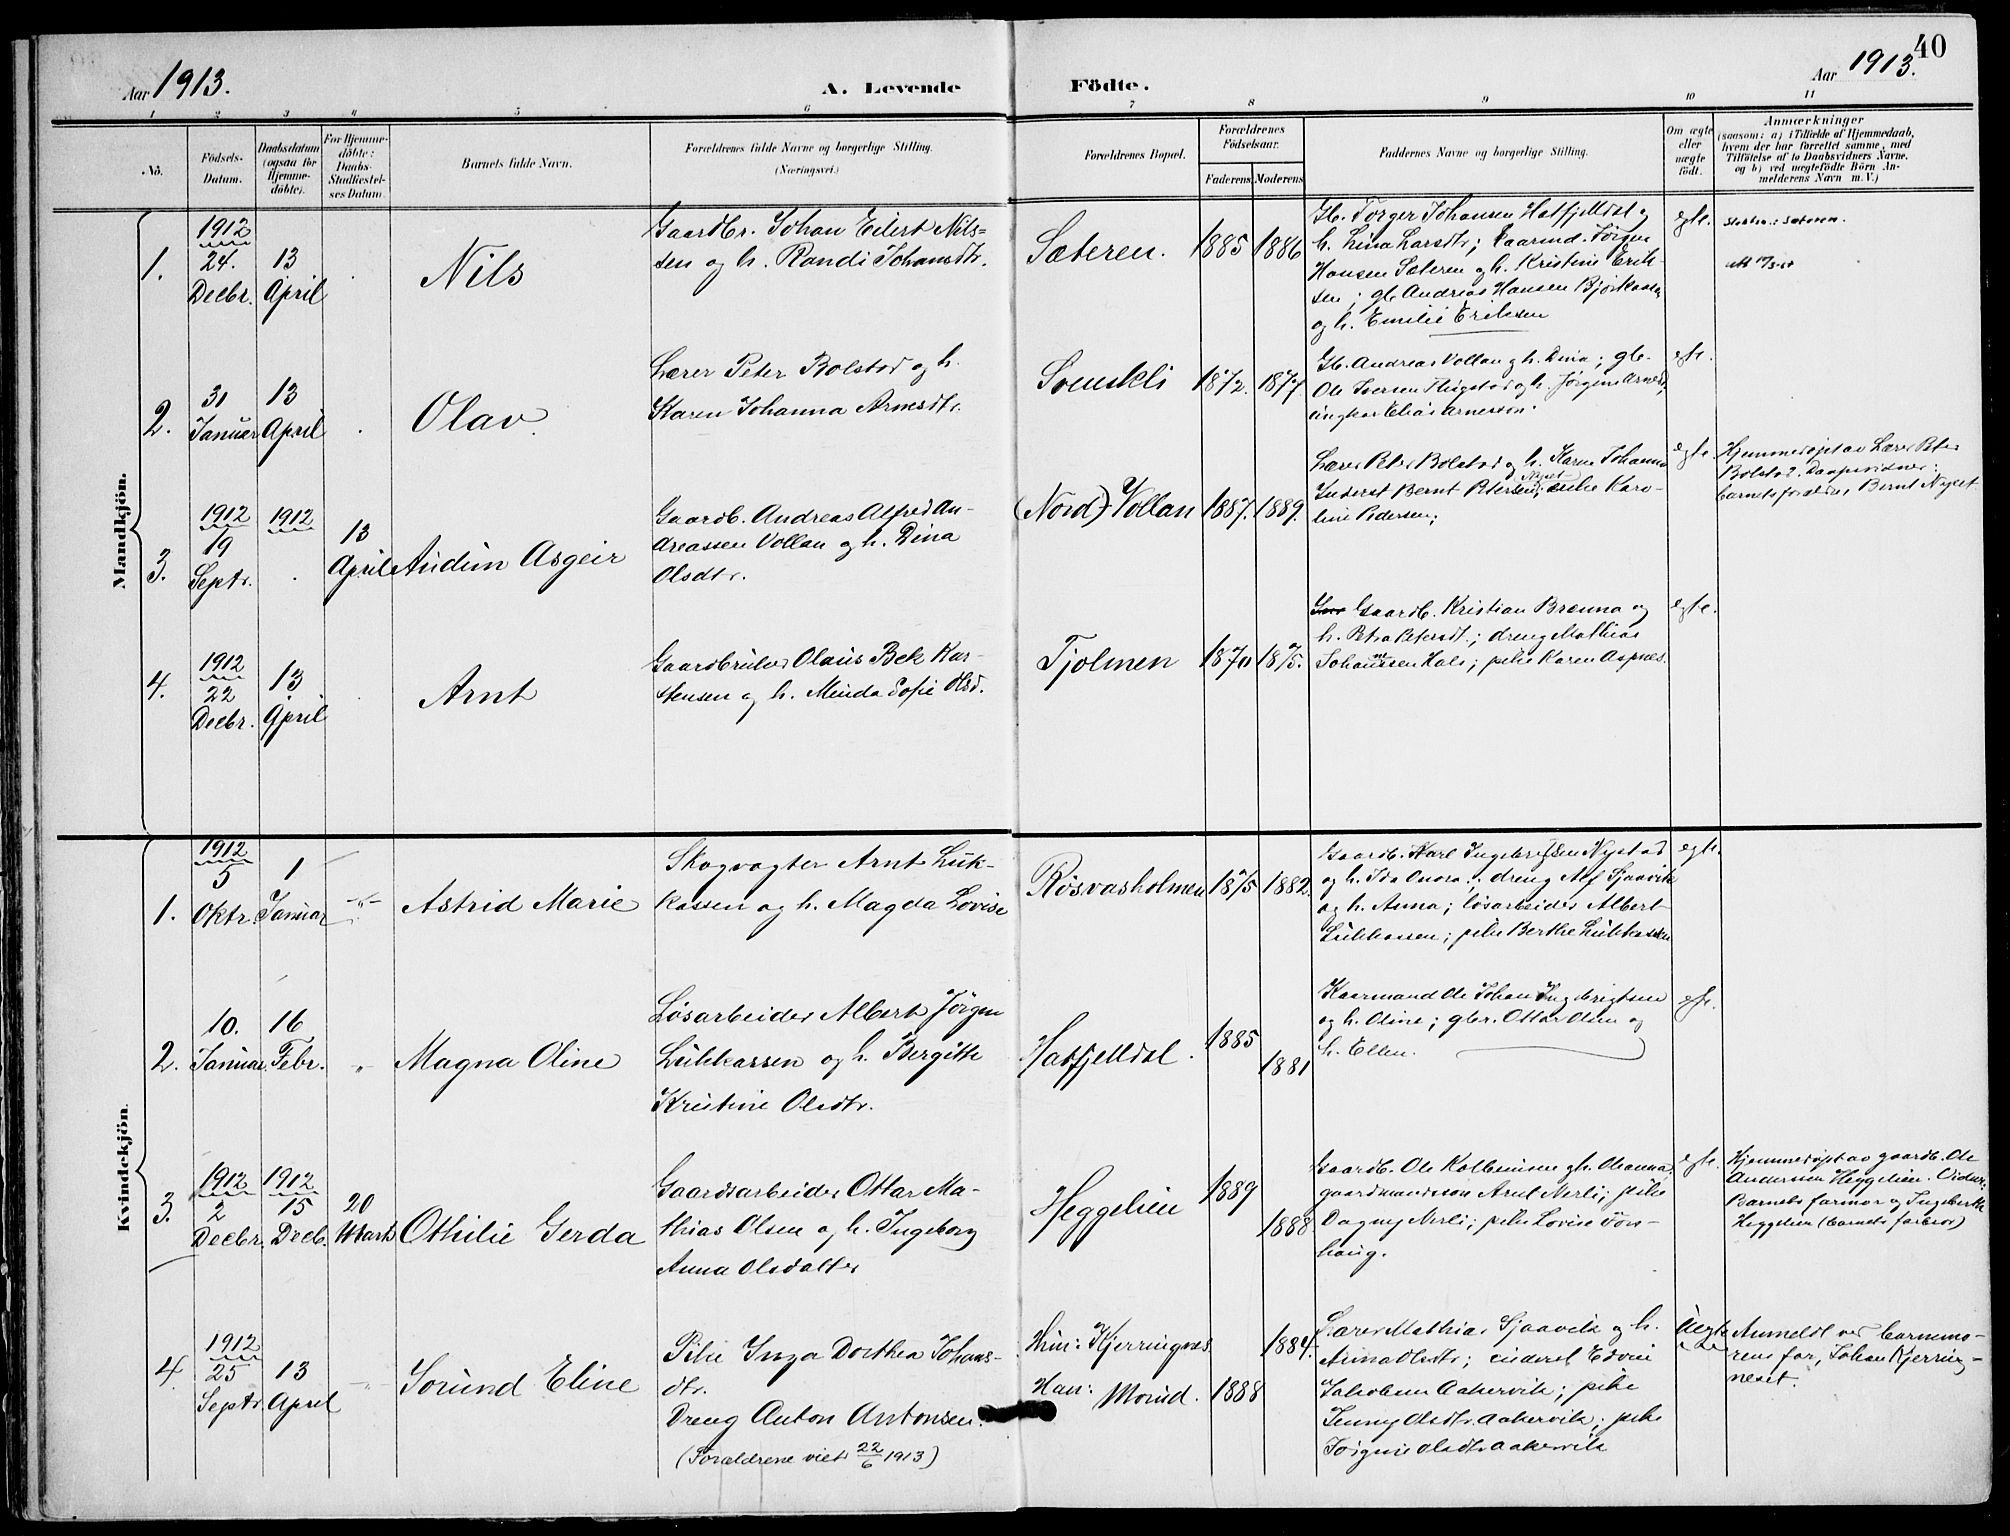 40
Aar 1913.
A. Levende
Födte.
Aar 1913.
1 2 3 4 5 6 7 8 9 10 11
No.
Födsels-
Datum.
Daabsdatum
(ogsaa for
Hjemme-
döbte).
For Hjemme-
döbte:
Daabs-
Stadfæstel-
ses Datum.
Barnets fulde Navn.
Forældrenes fulde Navne og borgerlige Stilling.
(Næringsvei.)
Forældrenes Bopæl.
Forældrenes
Födselsaar.
Faderens Moderens
Faddernes Navne og borgerlige Stilling.
Om ægte
eller
uægte
födt.
Anmærkninger
(saasom: a) i Tilfælde af Hjemmedaab,
hvem der har forrettet samme, med
Tilföielse af to Daabsvidners Navne,
og b) ved uægtefödte Börn An-
melderens Navn m. V.)
Mandkjön.
1.
1912
24.
Decbr.
13
April
Nils
Gaardbr. Johan Eilert Nils=
sen og h. Randi Johansdtr.
Sæteren.
1885 1886
Gb. Torger Johansen Hatfjelldal og
h. Lina Larsdtr; Kaarmd. Jørgen
Hansen Sæteren og h. Kristine Erik-
sen; gb. Andreas Hansen Bjørkaasen
og h. Emilie Eriksen
egte.
2.
31
Januar
13
April
Olav
Lærer Peter Bolstad og h.
Karen Johanna Arnesdtr.
Svenskli
1872. 1877.
Gb. Andreas Vollan og h. Dina; gb.
Ole Iversen og h. Jørgine Arnesd,
ungkar Elias Arnesen.
egte.
3.
1912
19
Septr.
1912
13
April
Audun Asgeir
Gaardb. Andreas Alfred An-
dreassen Vollan og h. Dina
Olsdtr.
(Nord) Vollan
1887. 1889.
Lærer Peter Bolstad og h. Karen Johanna
Inderst Bernt Petersen Nyset; pike Karo-
line Pedersen;
egte.
Hjemmedøpt av Lærer Peter
Bolstad. Daapsvidner:
barnets forældre, Bernt Nyset
4.
1912
22
Decbr.
13
April
Arnt
Gaardbruker Olaus Bek Kar-
stensen og h. Minda Sofie Olsd.
Tjolmen
1870 1875.
Gaardb. Kristian Brenna og
h. Petra Petersdt.; dreng Mathias
Johannessen Hals; pike Karen Aspnes.
egte.
Kvindekjön.
1.
1912
5
Oktr.
1
Januar
Astrid Marie
Skogvogter Arnt Luk-
kassen og h. Magda Lovise
Røsvasholmen
1875 1882.
Gaardb. Karl Ingebrigtsen Nystad
og h. Ida Anora; dreng Alf Sjaavik
og h. Anna; løsarbeider Albert
Lukkassen; pike Berthe Lukkassen
egte.
2.
10.
Januar
16
Febr.
Magna Oline
Løsarbeider Albert Jørgen
Lukkassen og h. Bergitte
Kristine Olsdtr.
Hatfjelldal.
1885
1881
Kaarmand Ole Johan Ingebrigtsen
og h. Oline; gbr. Ottar Olsen og
h. Ellen.
egte.
3.
1912
2
Decbr.
1912
15
Decb.
20
Marts
Othilie Gerda
Gaardsarbeider Ottar Ma-
thias Olsen og h. Ingeborg
Anna Olsdatter
Heggelien
1889
1888
Gaardb. Ole Kolbensen og h. Oleanna,
gaardmandssøn Arnt Nerli; pike
Dagny Nerli; pike Lovise Tøn-
haug.
egte.
Hjemmedøpt av gaardb. Ole
Andersen Heggelien. Vidner:
Barnets farmor og Ingebrekt
Heggelien (barnets farbror)
4.
1912
25
Septr.
13
April
Sørund Eline
Pike Inga Dorthea Johans-
dtr.
Dreng Anton Antonsen.
(Forældrene viet 22/6 1913)
Hun: Kjerringnes
Han: Morud.
1884.
1888
Lærer Mathias Sjaavik og h.
Anna Olsdtr; inderst Edvin
Jakobsen Aakervik; pike
Jenny Olsdtr. Aakervik; pike
Jørgine Olsdtr Aakervik
Uegte
Anmeldt ved barnemo-
rens far, Johan Kjerring-
neset.